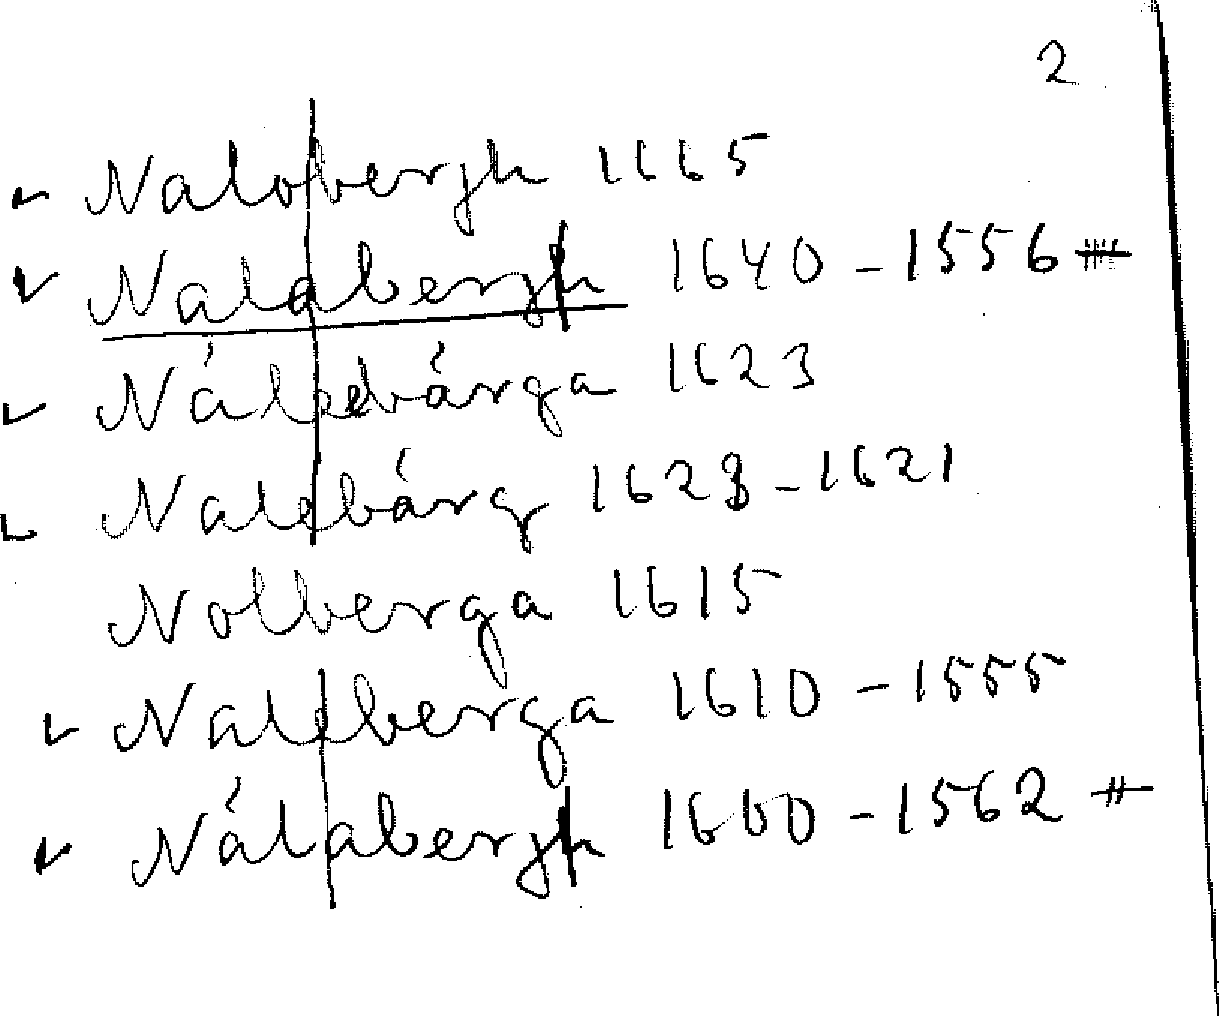 2
Nalobergh 1665
Nalabergh 1640 - 1556
Nálebárga 1623
Nalebárg 1623 - 1621
Nolberga 1615
Naleberga 1610 - 1555
Nálabergh 1600 - 1562